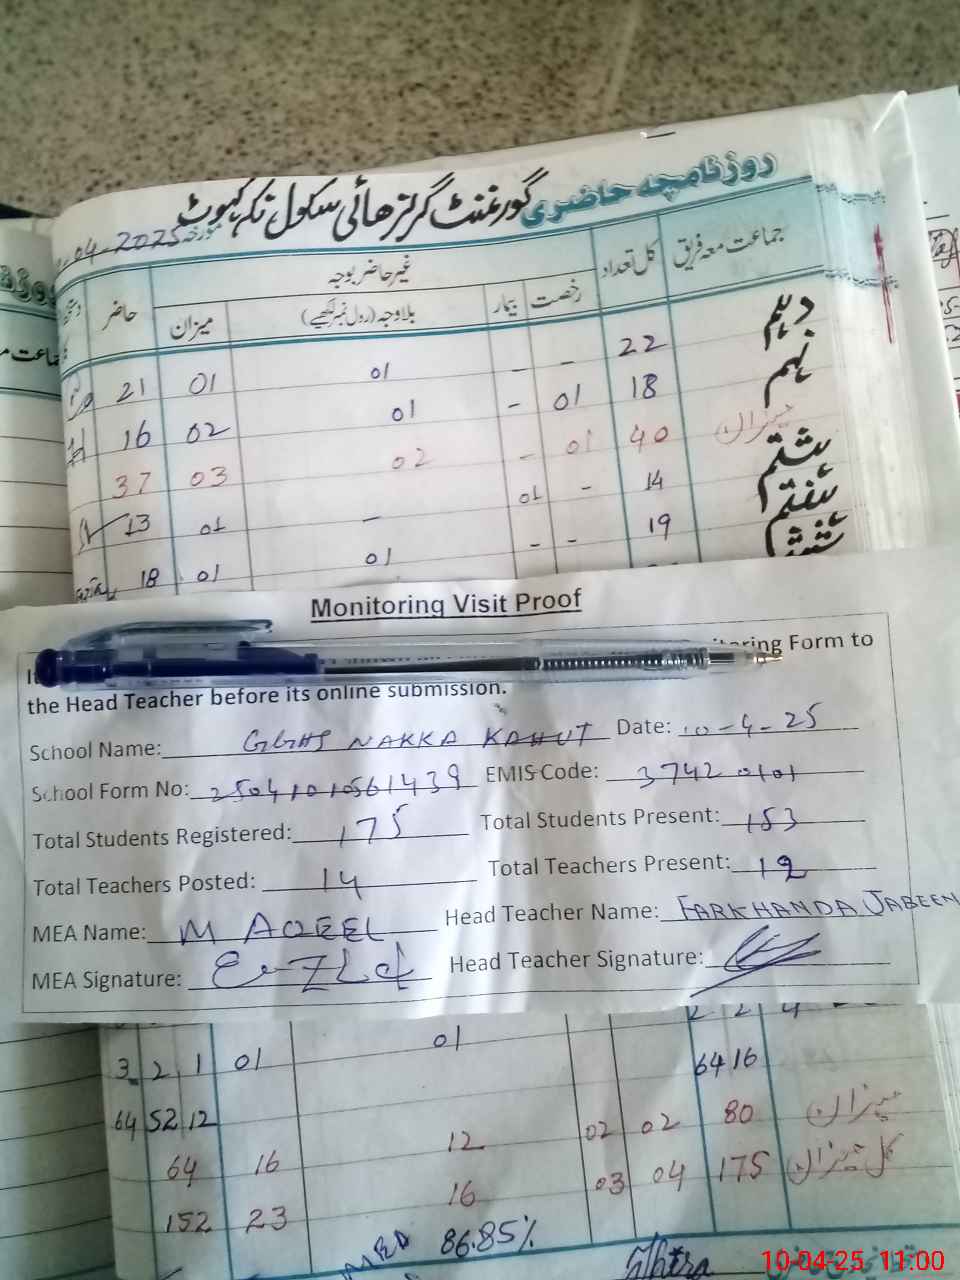 روزنامچہ حاضری گورنمنٹ گرلز ھائی سکول نکہ کہوٹ
مورخہ 04-2025
جماعت معہ فریق کل تعداد غیر حاضر بوجہ حاضر
رخصت بیمار بلاوجہ (رول نمبر لکھیے) میزان
دہم 22 - - 01 01 21
نہم 18 01 - 01 02 16
میزان 40 01 - 02 03 37
ہشتم 14 - 01 - 01 13
ہفتم 19 - - 01 01 18
ششم
Monitoring Visit Proof
ring Form to
the Head Teacher before its online submission.
School Name: GGHS NAKKA KAHUT Date: 10-4-25
School Form No: 2504101561439 EMIS Code: 37420101
Total Students Registered: 175 Total Students Present: 153
Total Teachers Posted: 14 Total Teachers Present: 12
MEA Name: M AQEEL Head Teacher Name: FARKHANDA JABEEN
MEA Signature: Head Teacher Signature:
01
3 2 1 01 6416
64 52 12
میزان 80 02 02 12 16 64
کل میزان 175 04 03 16 23 152
86.85%
10-04-25 11:00